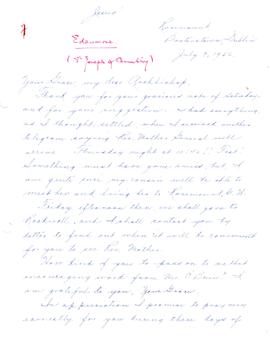 Jesus!
Rosemount
Booterstown, Dublin
July 9, 1952
Edenmore
(St Joseph of Chambéry)
Your Grace, my dear Archbishop,
Thank you for your gracious note of Saturday
and for your suggestion. I had everything,
as I thought, settled, when I received another
telegram saying Rev. Mother General will
arrive Thursday night at 10:40!! That
something must have gone amiss, but I
am quite sure my cousin will be able to
meet her and bring her to Rosemount, O.K.
Friday afternoon then we shall go to
and I shall contact you by
letter to find out when it will be convenient
for you to see Rev. Mother.
How kind of you to pass on to us that
encouraging word from Mr. O'Brien! I
am grateful to you, Your Grace.
In appreciation I promise to pray more
earnestly for you during these days of